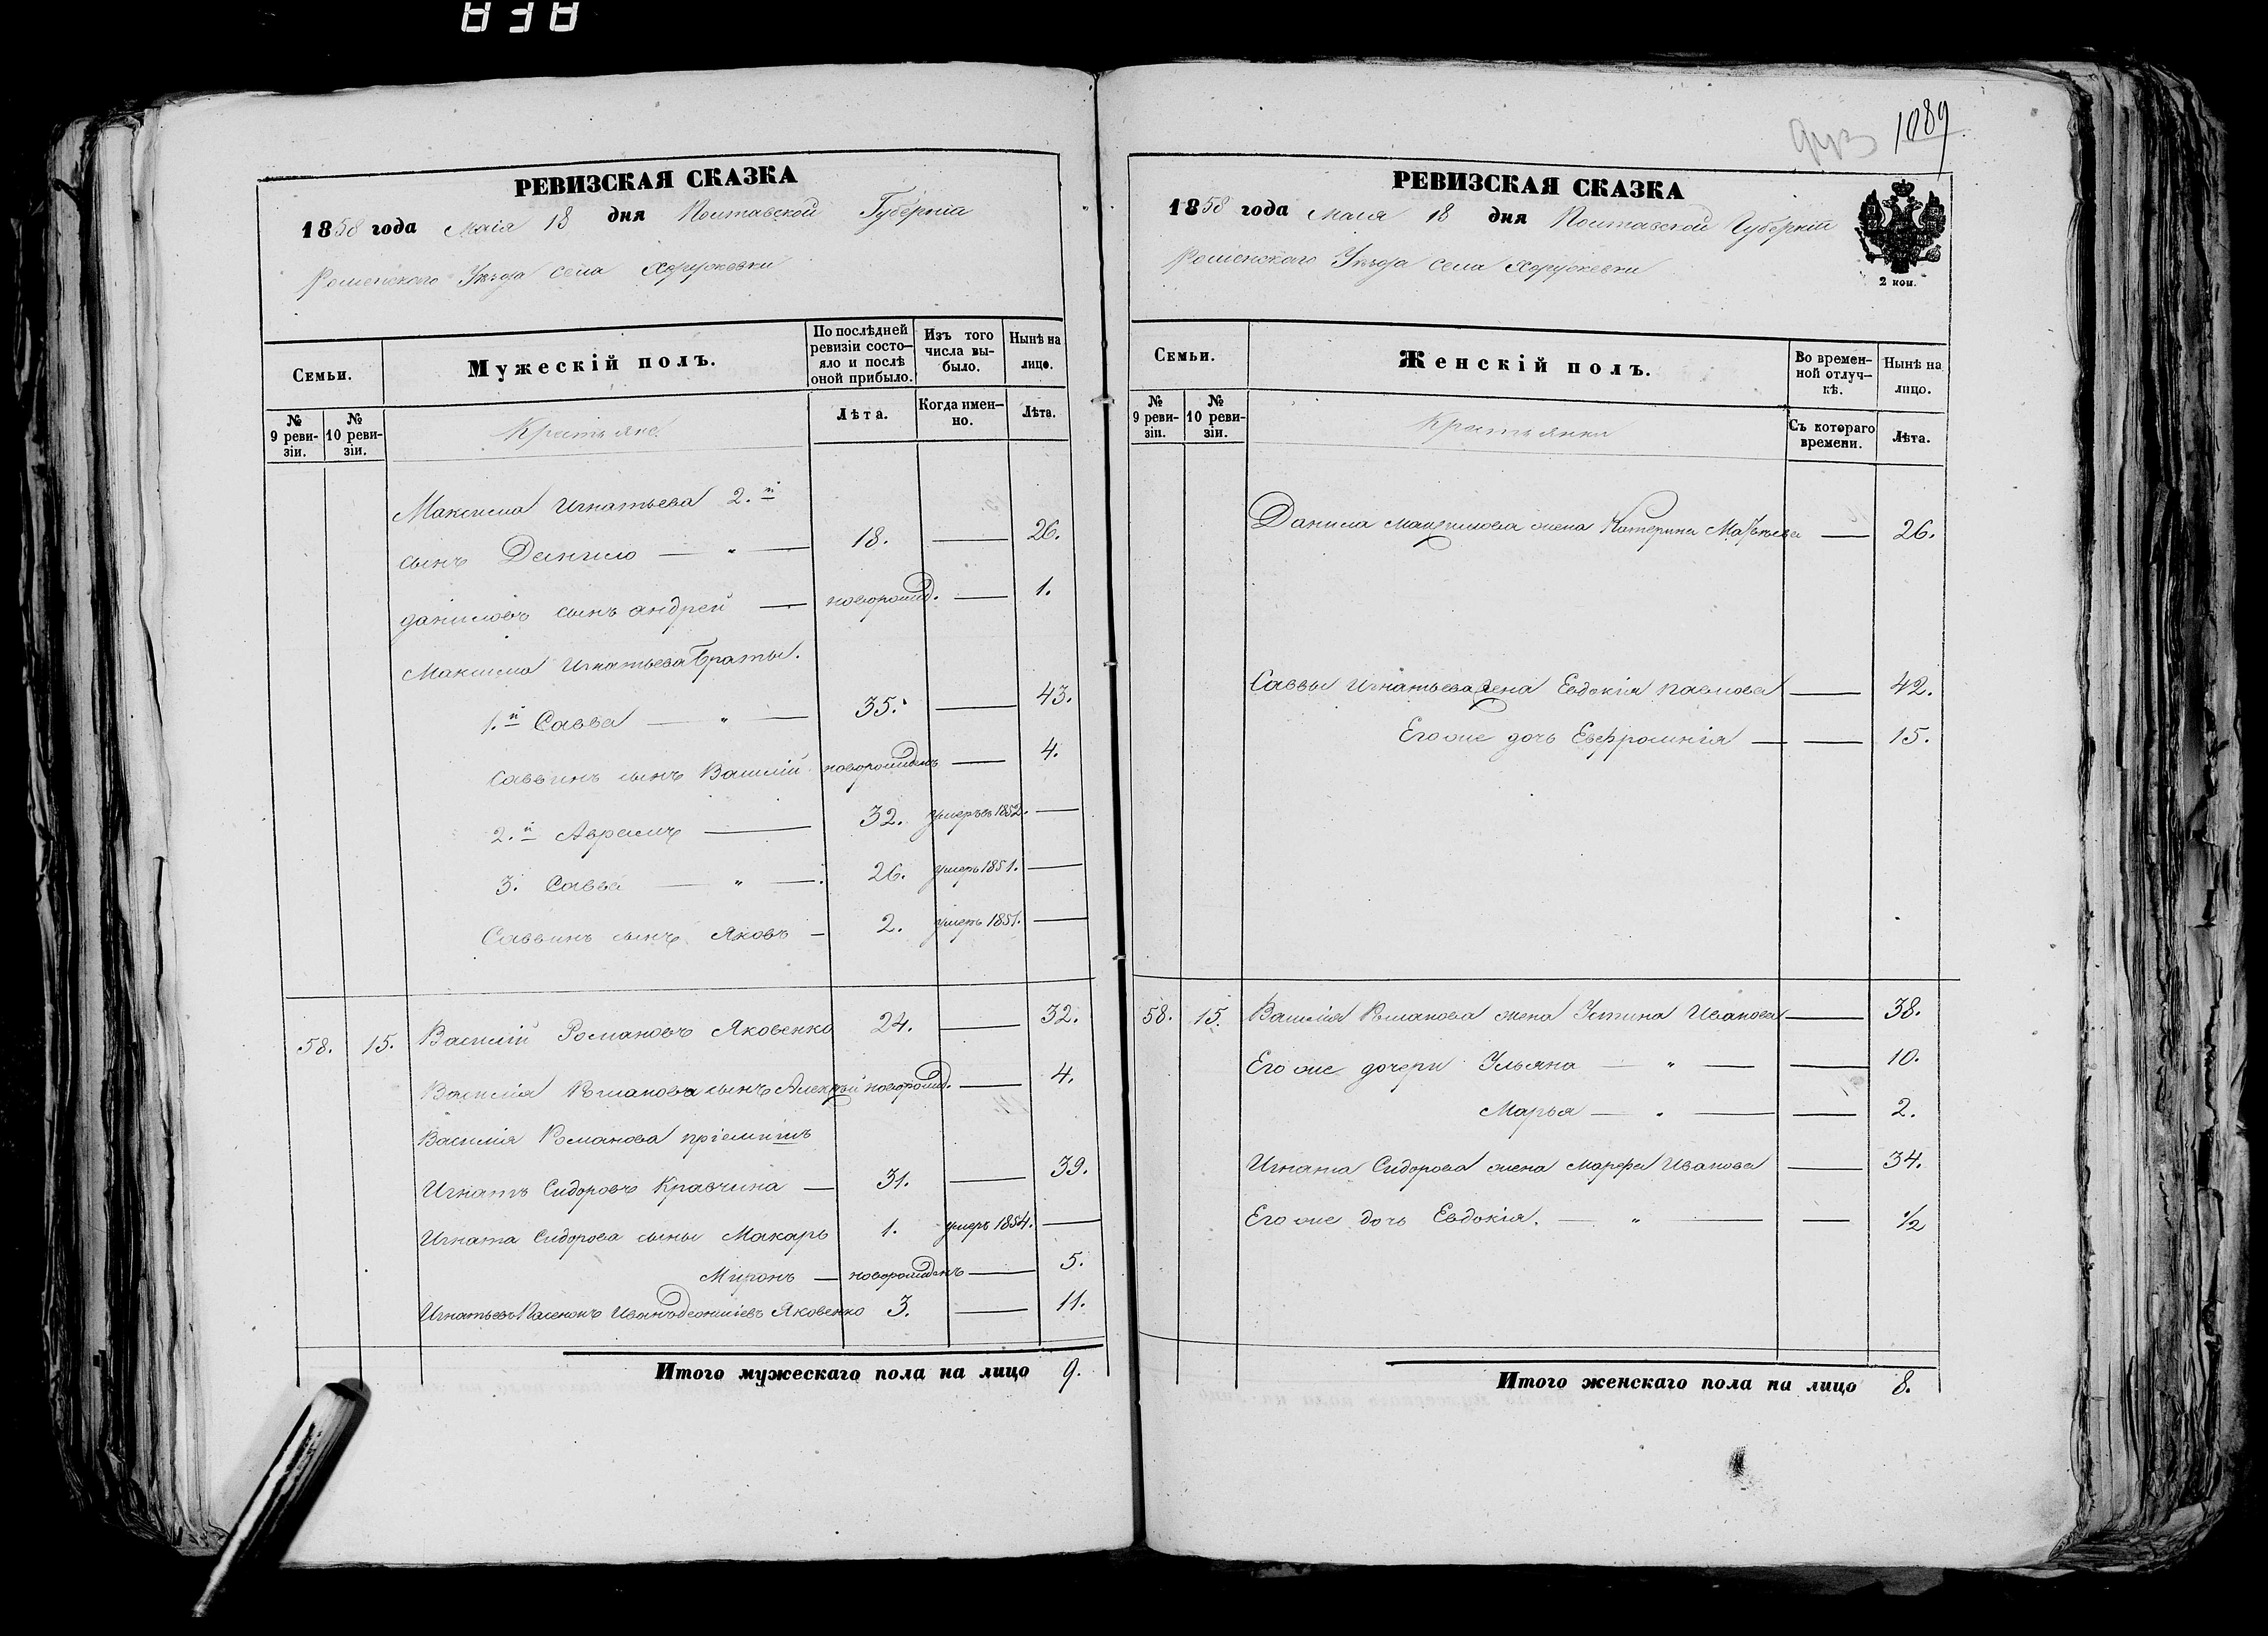 838
РЕВИЗСКАЯ СКАЗКА
1858 года Маія 18 дня Полтавской Губерніи
Роменского Уѣзда села Хоружевки
Семьи.
Мужескій полъ.
По послѣдней ревизіи состо-
яло и послѣ
оной прибыло.
Изъ того
числа вы-
было.
Нынѣ на
лицо.
№
9 реви-
зіи.
№
10 реви-
зіи.
Крестьяне
Лѣта.
Когда имен-
но.
Лѣта.
Максима Игнатьева 2.й
сынъ Данило — „ — 18. — 26.
Даниловъ сынъ Андрей — новорожд. — 1.
Максима Игнатьева Браты.
1.й Савва — „ — 35. — 43.
Саввинъ сынъ Василій новорожденъ — 4.
2.й Аврамъ — 32. умеръ въ 1852. —
3. Савва — „ — 26. умеръ 1851. —
Саввинъ сынъ Яковъ — 2. умеръ 1851. —
58. 15. Василій Романовъ Яковенко 24. — 32.
Василія Романова сынъ Алексѣй новорожд. — 4.
Василія Романова пріемышъ
Игнатъ Сидоровъ Кравчина — 31. — 39.
Игната Сидорова сыны Макаръ 1. умеръ 1854. —
Миронъ — новорожденъ — 5.
Игнатьевъ Иванъ Яковенко 3. — 11.
Итого мужескаго пола на лицо 9.
1089
РЕВИЗСКАЯ СКАЗКА
1858 года Маія 18 дня Полтавской Губерніи
Роменского Уѣзда села Хоружевки
2 коп.
Семьи.
Женскій полъ.
Во времен-
ной отлуч-
кѣ.
Нынѣ на
лицо.
№
9 реви-
зіи.
№
10 реви-
зіи.
Крестьянки
Съ котораго
времени.
Лѣта.
Данила Максимова жена Катерина — 26.
Саввы Игнатьева жена Евдокія Павлова — 42.
Его же дочь Евфросинія — — 15.
58. 15. Василія Романова жена Устина Иванова — 38.
Его же дочери Ульяна — „ — — 10.
Марья — „ — — 2.
Игната Сидорова жена Марфа Иванова — 34.
Его же дочь Евдокія. — „ — — 1/2
Итого женскаго пола на лицо 8.